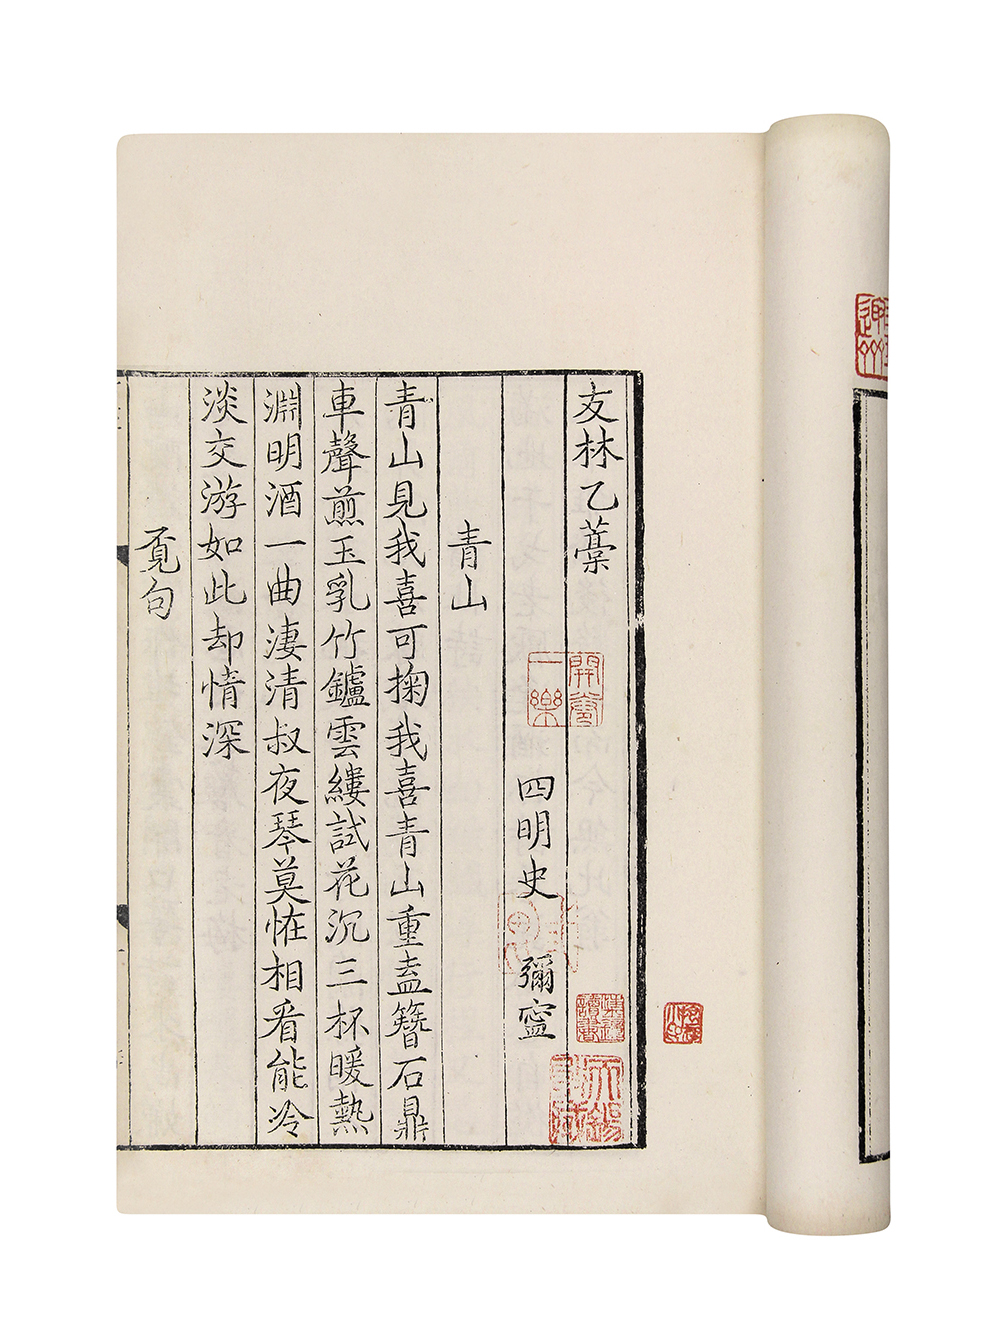 友林乙藁
四明史 彌寧
青山
青山見我喜可掬我喜青山重盍簪石鼎
車聲煎玉乳竹鑪雲縷試花沉三杯暖熱
淵明酒一曲淒清叔夜琴莫恠相看能冷
淡交游如此却情深
覔句
開卷一樂